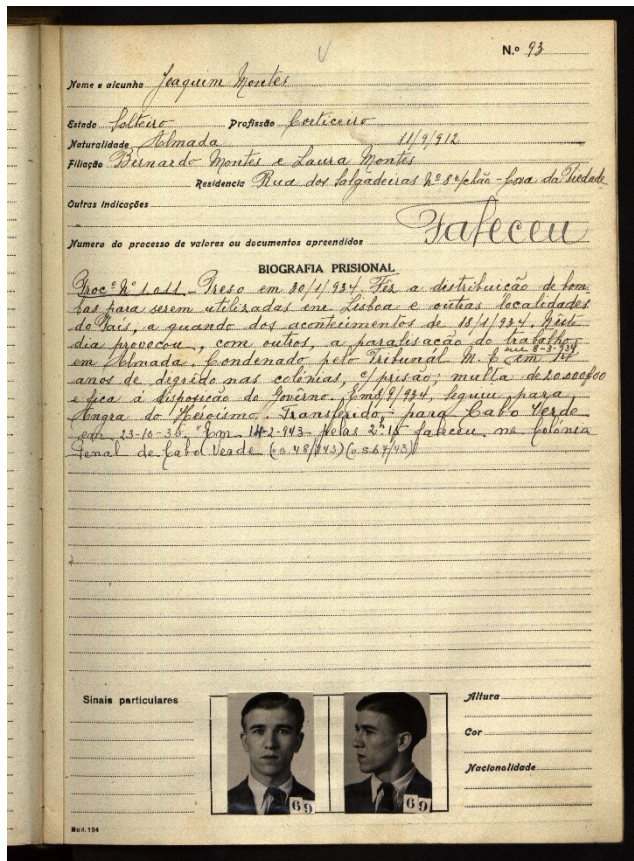 N.º 93
Nome e alcunho Joaquim Montes
Estado Solteiro Profissão Corticeiro
Naturalidade Almada 11/9/912
Filiação Bernardo Montes e Laura Montes
Residencia Rua dos Salgadeiras Nº 8 r/chão - Cova da Piedade
Outras indicações
Faleceu
Numero do processo de valores ou documentos apreendidos
BIOGRAFIA PRISIONAL
Procº Nº 1.011 - Preso em 30/1/934. Fez a distribuição de bom
bas para serem utilizadas em Lisboa e outras localidades
do País, a quando dos acontecimentos de 18/1/934. Neste
dia provocou, com outros, a paralisação do trabalho
em Almada. Condenado pelo Tribunal M. E. em 8-3-934 14
anos de degrêdo nas colónias, c/ prisão; multa de 20.000$00
e fica á disposição do Govêrno. Em 8/9/934, seguiu para
Angra do Heroismo. Transferido, para Cabo Verde
em 23-10-36. Em 14-2-943 pelas 2h,15 faleceu na Colónia
Penal de Cabo Verde (o.s. 48/943) (o.s. 64/43)
Sinais particulares
Altura
Cor
Nacionalidade
69
69
Mod. 194